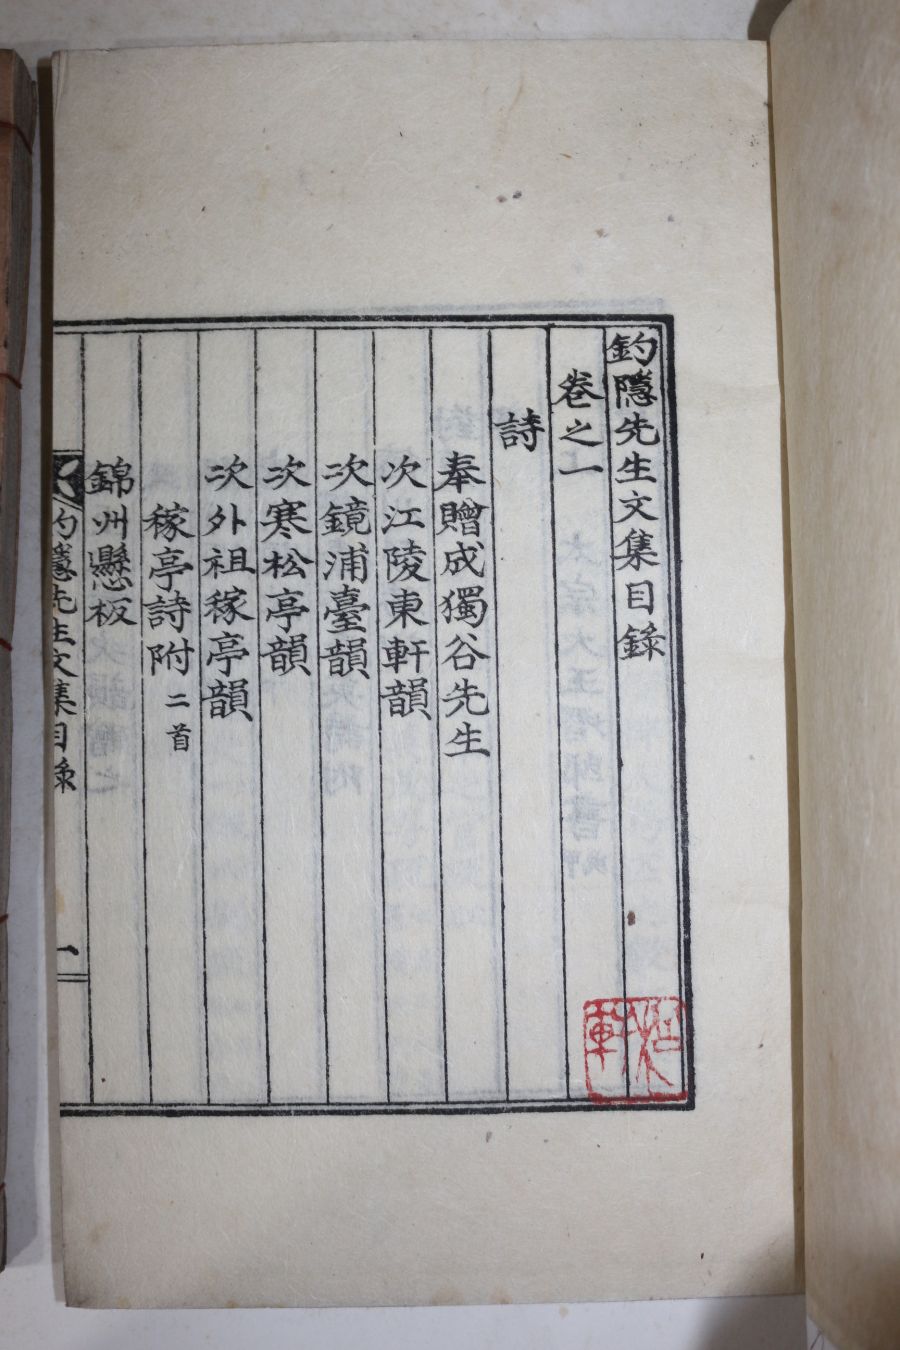 釣隱先生文集目錄
卷之一
詩
奉贈成獨谷先生
次江陵東軒韻
次鏡浦臺韻
次寒松亭韻
次外祖稼亭韻
稼亭詩附 二首
錦州懸板
釣隱先生文集目錄
一